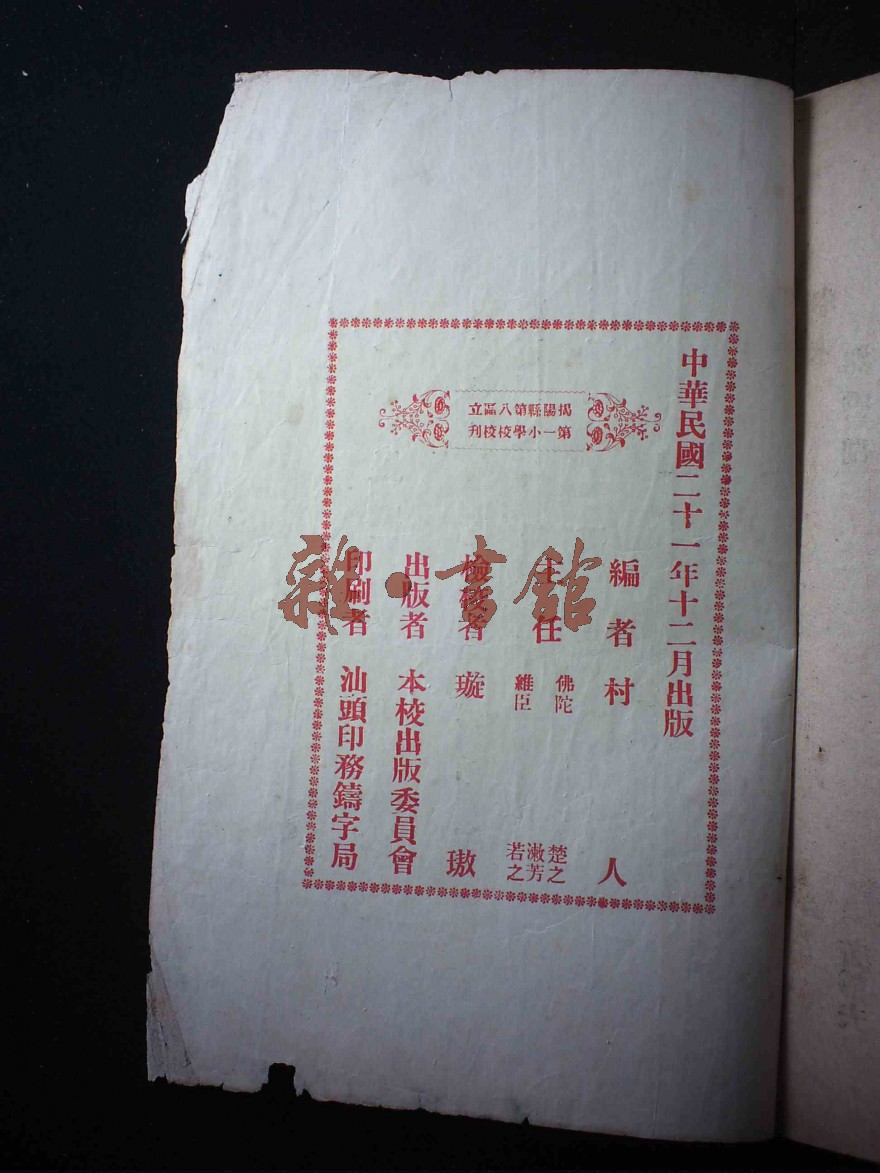 中華民國二十一年十二月出版
揭陽縣第八區立
第一小學校校刊
編者 村人
主任 佛陀 楚之
漱芳
維臣 若之
檢者 璇璈
出版者 本校出版委員會
印刷者 汕頭印務鑄字局
雜·書館